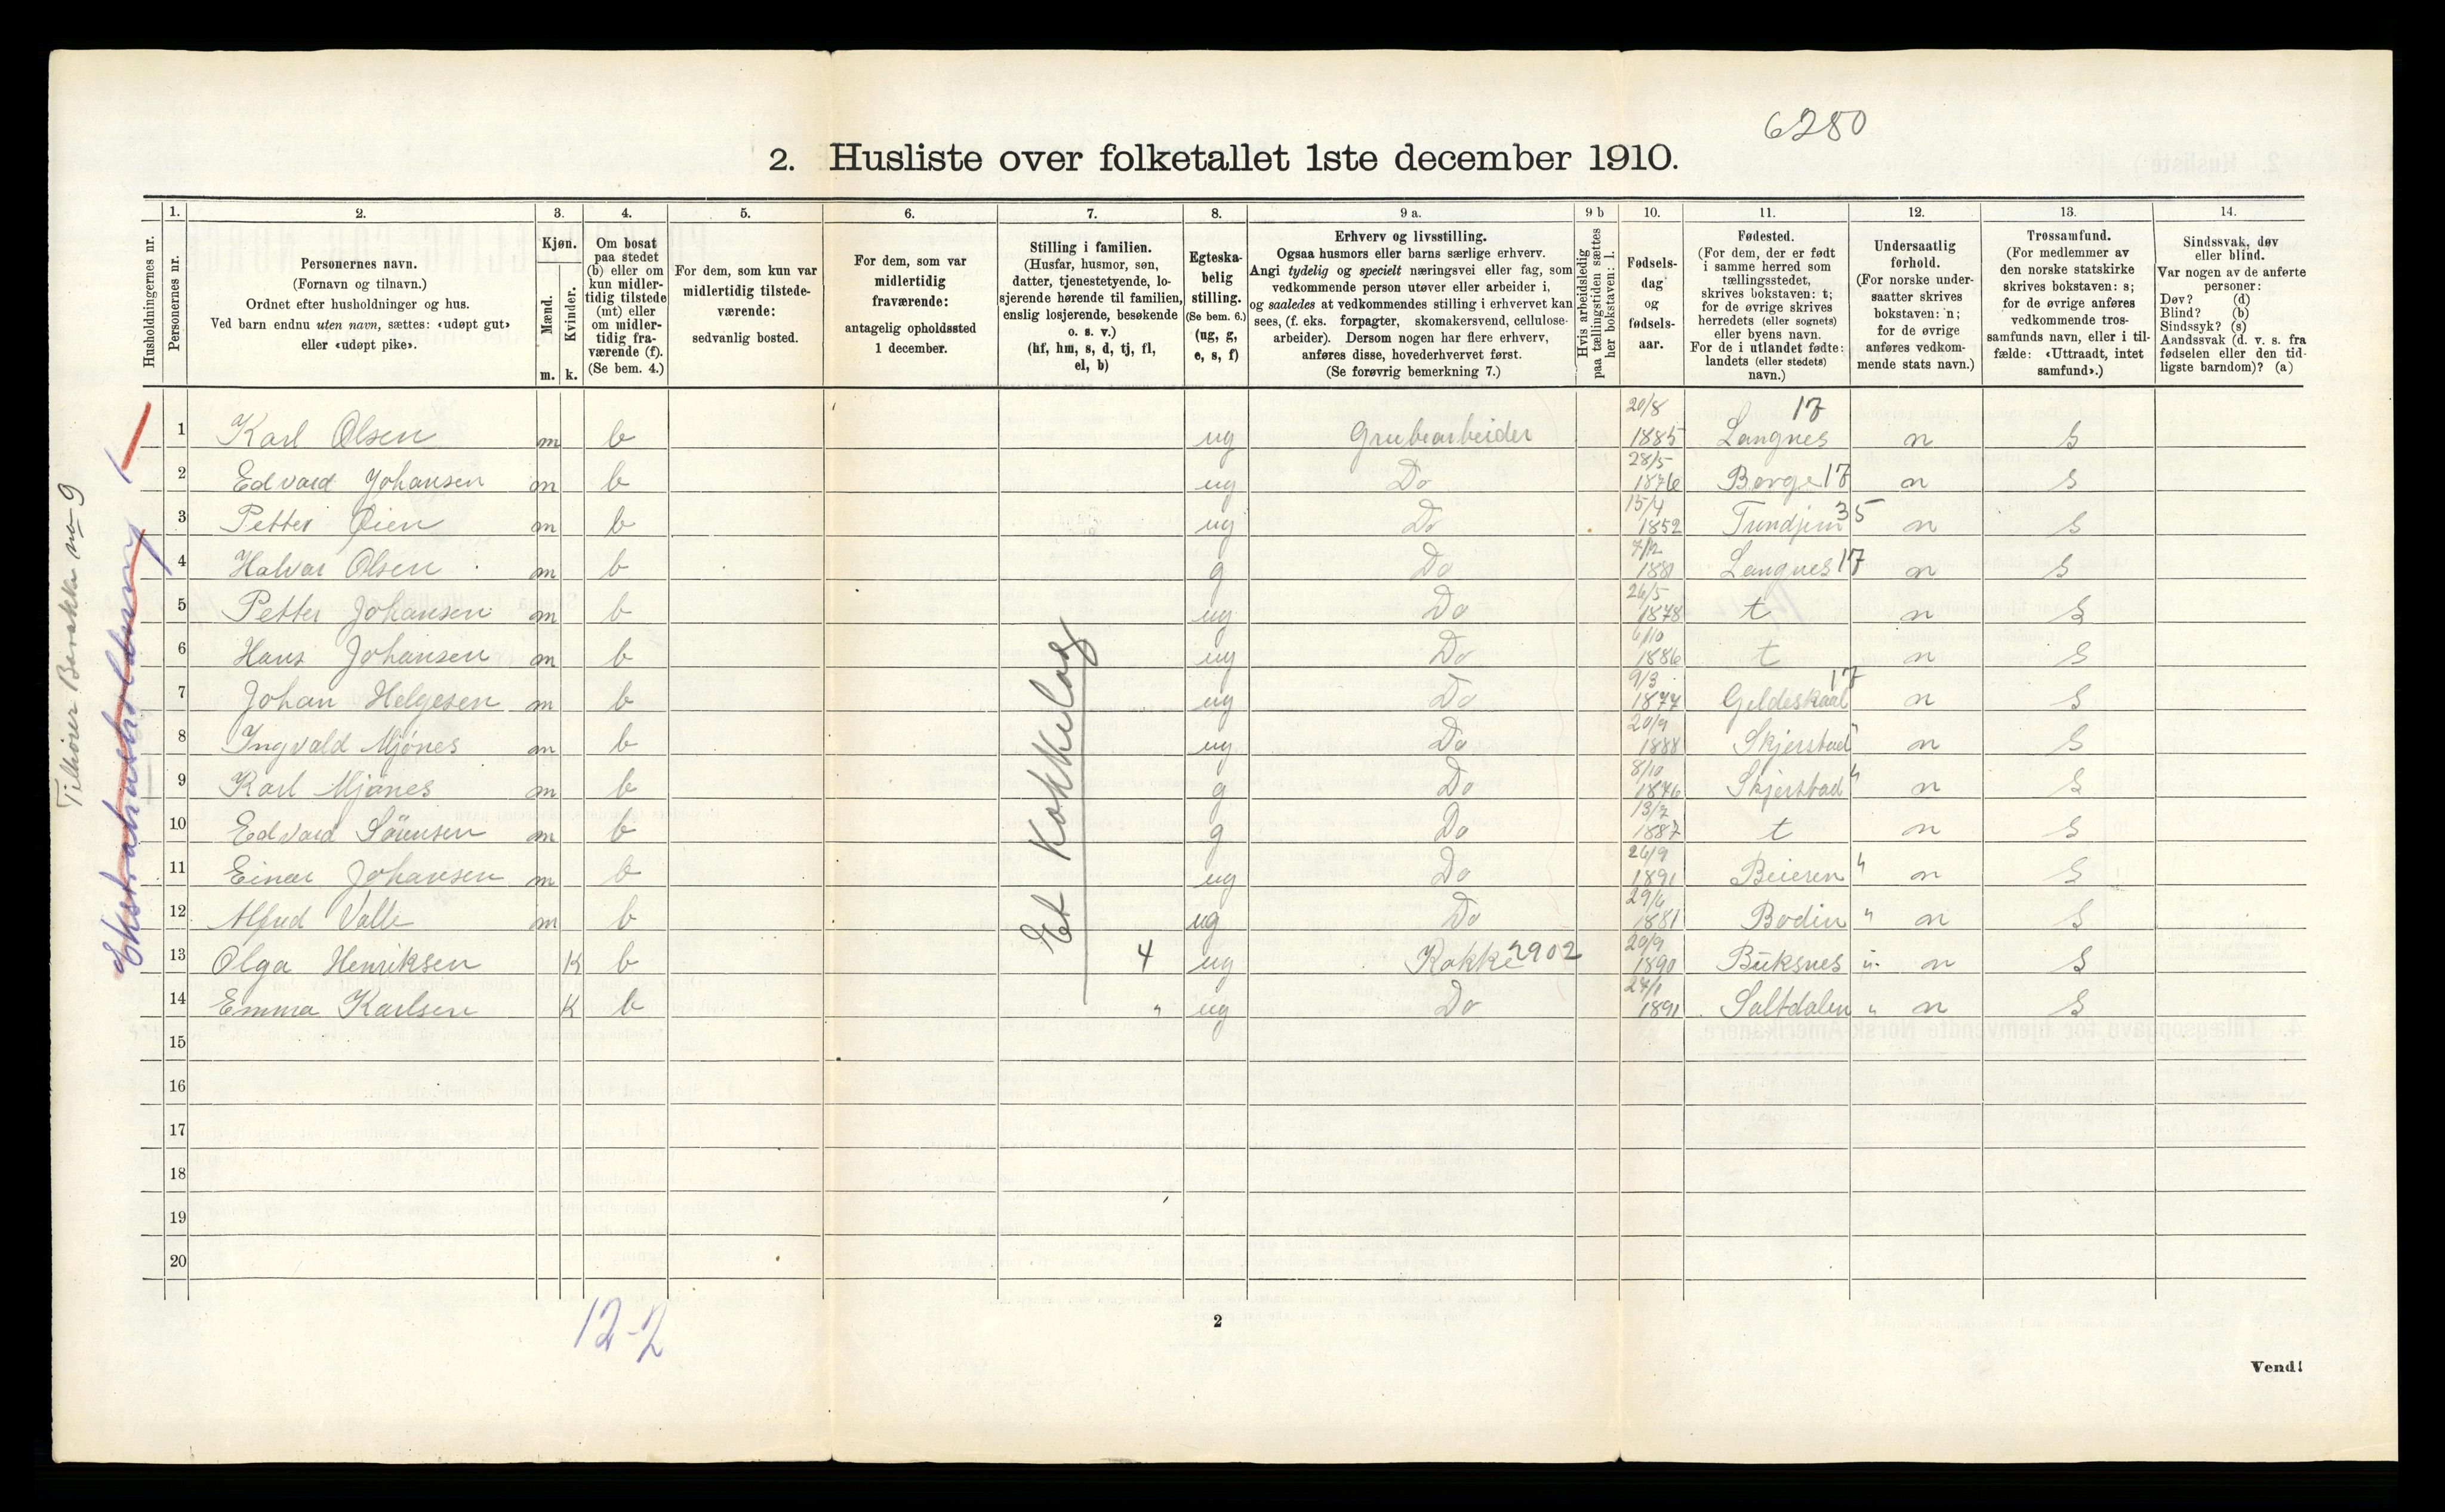 6280
2. Husliste over folketallet 1ste december 1910.
Husholdningernes nr.
1. Personernes nr.
2. Personernes navn. (Fornavn og tilnavn.) Ordnet efter husholdninger og hus. Ved barn endnu uten navn, sættes: «udøpt gut» eller «udøpt pike».
3. Kjøn. Mænd. m. Kvinder. k.
4. Om bosat paa stedet (b) eller om kun midlertidig tilstede (mt) eller om midlertidig fraværende (f). (Se bem. 4.)
5. For dem, som kun var midlertidig tilstedeværende: sedvanlig bosted.
6. For dem, som var midlertidig fraværende: antagelig opholdssted 1 december.
7. Stilling i familien. (Husfar, husmor, søn, datter, tjenestetyende, losjerende hørende til familien, enslig losjerende, besøkende o. s. v.) (hf, hm, s, d, tj, fl, el, b)
8. Egteskabelig stilling. (Se bem. 6.) (ug, g, e, s, f)
9 a. Erhverv og livsstilling. Ogsaa husmors eller barns særlige erhverv. Angi tydelig og specielt næringsvei eller fag, som vedkommende person utøver eller arbeider i, og saaledes at vedkommendes stilling i erhvervet kan sees, (f. eks. forpagter, skomakersvend, cellulosearbeider). Dersom nogen har flere erhverv, anføres disse, hovederhvervet først. (Se forøvrig bemerkning 7.)
9 b Hvis arbeidsledig paa tællingstiden sættes her bokstaven: l.
10. Fødselsdag og fødselsaar.
11. Fødested. (For dem, der er født i samme herred som tællingsstedet, skrives bokstaven: t; for de øvrige skrives herredets (eller sognets) eller byens navn. For de i utlandet fødte: landets (eller stedets) navn.)
12. Undersaatlig forhold. (For norske undersaatter skrives bokstaven: n; for de øvrige anføres vedkommende stats navn.)
13. Trossamfund. (For medlemmer av den norske statskirke skrives bokstaven: s; for de øvrige anføres vedkommende trossamfunds navn, eller i tilfælde: «Uttraadt, intet samfund».)
14. Sindssvak, døv eller blind. Var nogen av de anførte personer: Døv? (d) Blind? (b) Sindssyk? (s) Aandssvak (d. v. s. fra fødselen eller den tidligste barndom)? (a)
Tilhører Barakke no 9
Ekstrahusholdning 1
Et Kokkelag
1 Karl Olsen m b ug Grubearbeider 20/8 1885 Langnes 17 n s
2 Edvard Johansen m b ug Do 28/5 1876 Borge 17 n s
3 Petter Öien m b ug Do 15/4 1852 Trondjem 35 n s
4 Halvar Olsen m b g Do 7/12 1881 Langnes 17 n s
5 Petter Johansen m b ug Do 26/5 1878 t n s
6 Hans Johansen m b ug Do 6/10 1886 t n s
7 Johan Helgesen m b ug Do 9/3 1877 Gildeskaal 17 n s
8 Ingvald Mjönes m b ug Do 20/9 1888 Skjerstad " n s
9 Karl Mjönes m b g Do 8/10 1876 Skjerstad " n s
10 Edvard Sörensen m b g Do 13/7 1887 t n s
11 Einar Johansen m b ug Do 26/9 1891 Beieren " n s
12 Alfred Valle m b ug Do 29/6 1881 Bodin " n s
13 Olga Henriksen K b 4 ug Kokke 2902 20/9 1890 Buksnes " n s
14 Emma Karlsen K b " ug Do 24/1 1891 Saltdalen " n s
15
16
17
18
19
20
12-2
2
Vend!